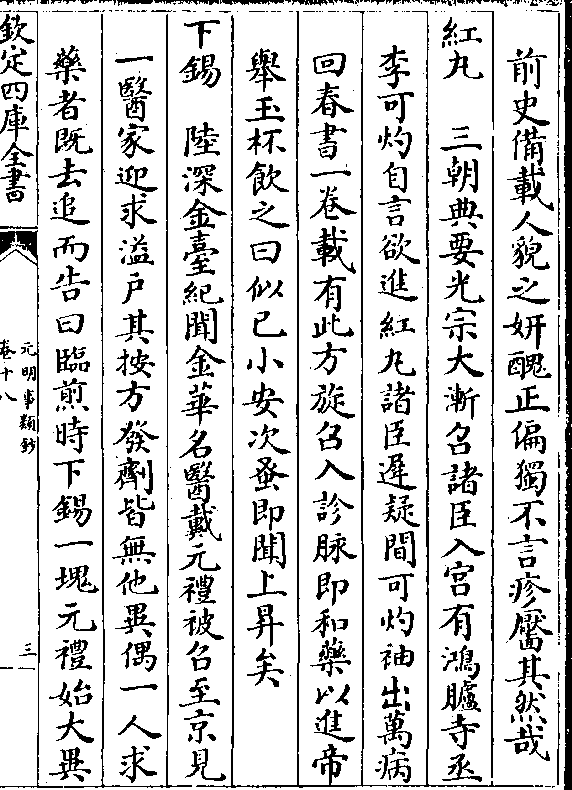 前史備載人貌之妍醜正偏獨不言疹靨其然哉
紅丸　三朝典要光宗大漸召諸臣入宮有鴻臚寺丞
李可灼自言欲進紅丸諸臣遲疑間可灼袖出萬病
回春書一卷載有此方旋召入診脉即和藥以進帝
舉玉杯飲之曰似已小安次蚤即聞上昇矣
下錫　陸深金臺紀聞金華名醫戴元禮被召至京見
一醫家迎求溢戶其按方發劑皆無他異偶一人求
藥者既去追而告曰臨煎時下錫一塊元禮始大異
欽定四庫全書
元明事類鈔
卷十八
三